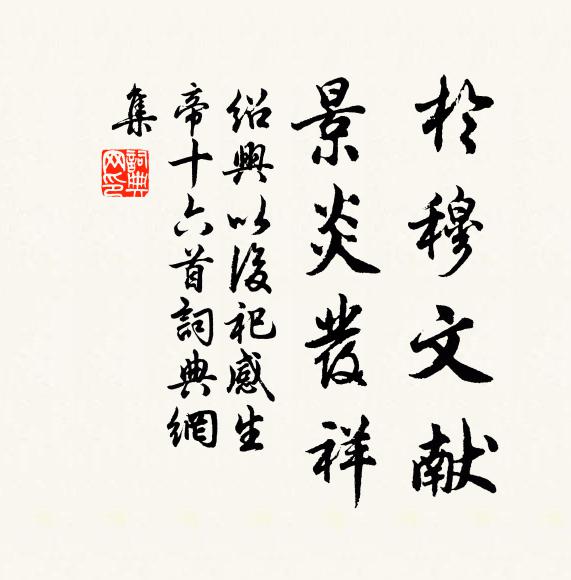 於穆文献
景炎發祥
紹興以後祀感生
帝十六首詞典網
集
詞典网印